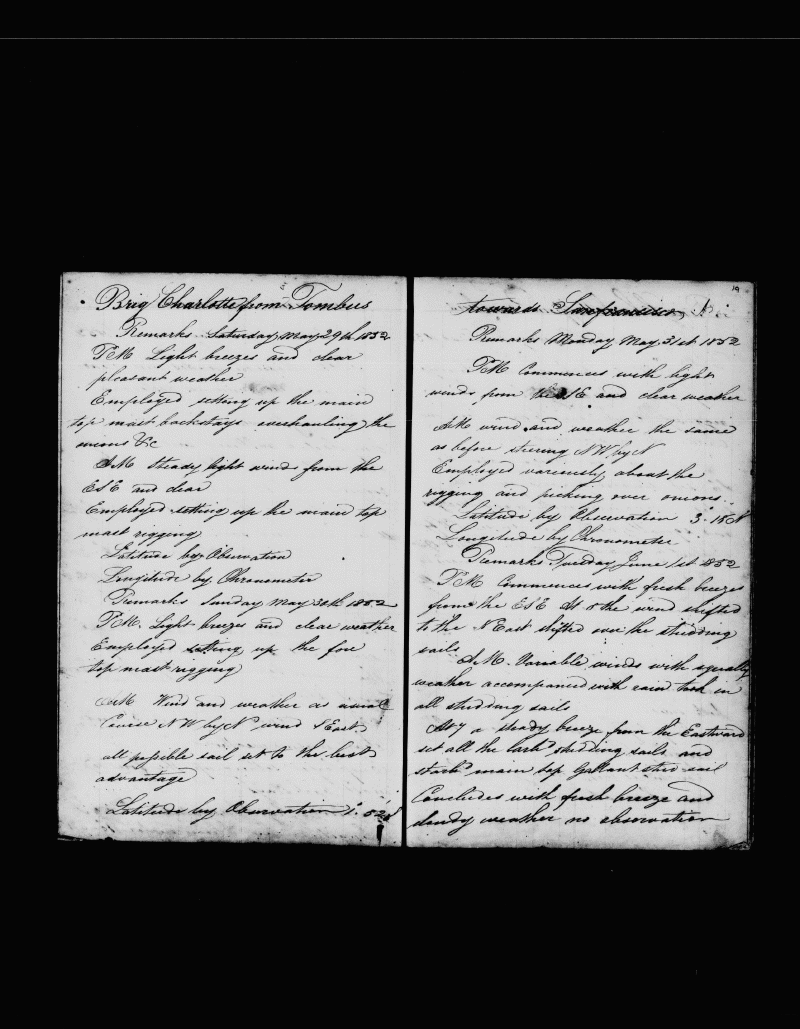 Brig Charlotte from Tombus
Remarks Saturday May 29th 1852
PM Light breezes and clear
pleasant weather
Employed setting up the main
top mast backstays overhauling the
onions &c
AM Steady light winds from the
ESE and clear
Employed setting up the main top
mast rigging
Latitude by Observation
Longitude by Chronometer
Remarks Sunday May 30th 1852
PM. Light breezes and clear weather
Employed setting up the fore
top mast rigging
AM Wind and weather as usual
Course NW by N wind SEast
all possible sail set to the best
advantage
Latitude by Observation 1°. 52
19
towards Sanfrancisco
Remarks Monday May 31st 1852
PM Commences with light
winds from the SE and clear weather
AM wind and weather the same
as before steering NW by N
Employed variously about the
rigging and picking over onions
Latitude by Observation 3. 15 N
Longitude by Chronometer
Remarks Tuesday June 1st 1852
PM Commences with fresh breezes
from the ESE At 8 the wind shifted
to the NEast shifted over the studding
sails
AM. Variable winds with squally
weather accompanied with rain took in
all studding sails
At 7 a steady breeze from the Eastward
set all the larbd studding sails and
starbd main top Gallant stud sail
Concludes with fresh breeze and
cloudy weather no observation